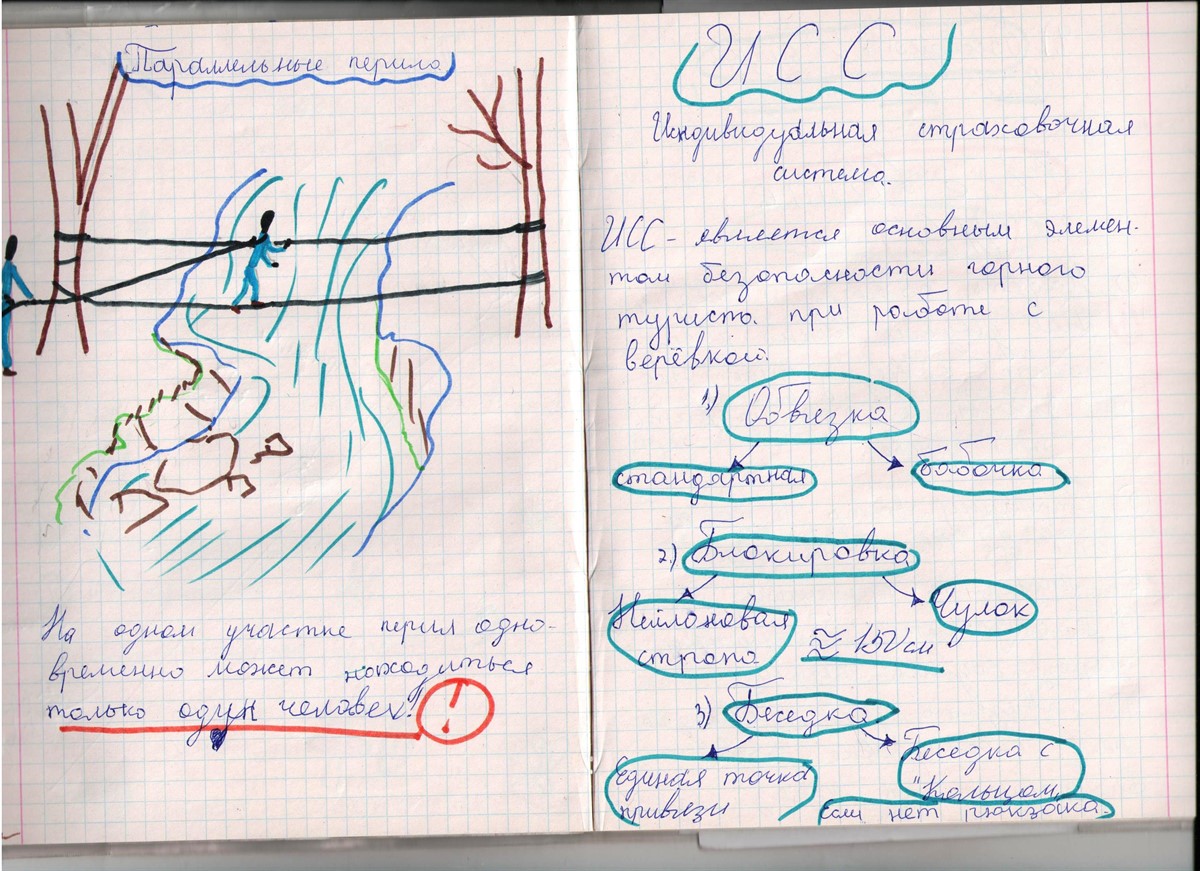 Параллельные перила
На одном участке перил одно-
временно может находиться
только один человек!
!
ИСС
Индивидуальная страховочная
система.
ИСС - является основным элемен-
том безопасности горного
туриста при работе с
верёвкой.
1.) Обвязка
стандартная бабочка
2.) Блокировка
Нейлоновая
стропа
≈ 150 см
Чулок
3) Беседка
Единая точка
привязи
Беседка с
"Кольцом"
если нет рюкзака.